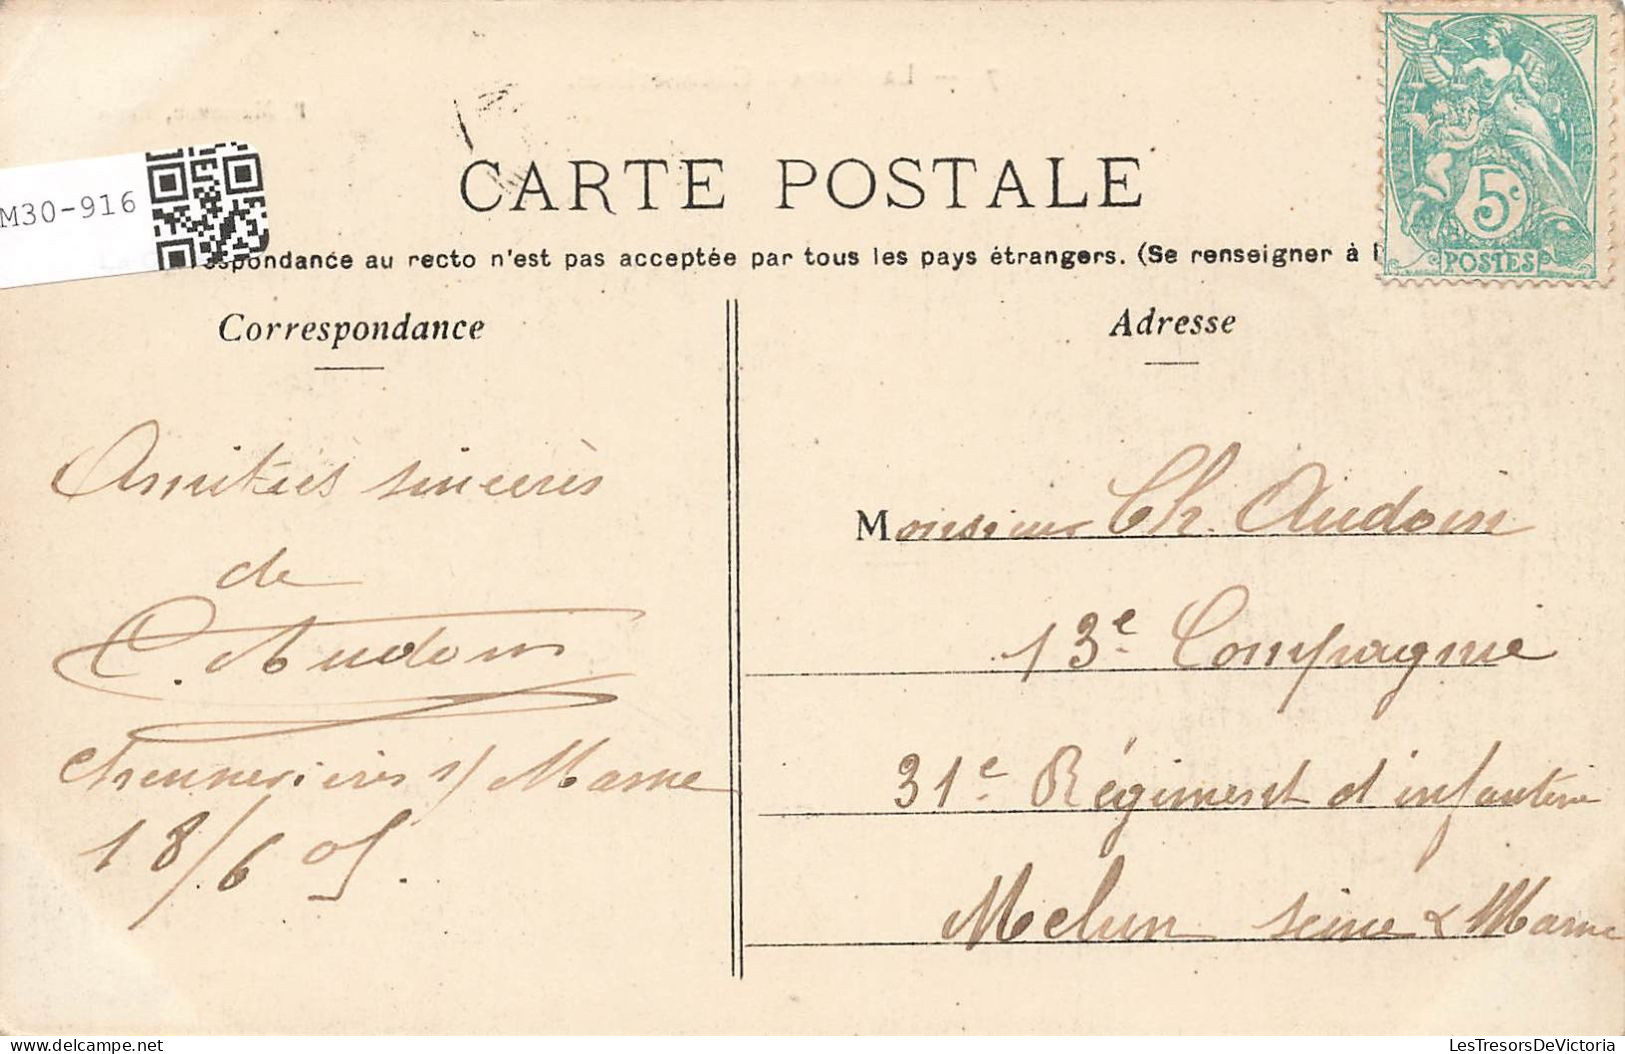 M30-916
CARTE POSTALE
La Correspondance au recto n'est pas acceptée par tous les pays étrangers. (Se renseigner à l
5c
POSTES
Correspondance
Adresse
Amitiés sincères
de
C. Audoin
Chennevières s/ Marne
18/6 05.
Monsieur Ch. Audoin
13e Compagnie
31e Régiment d'infanterie
Melun Seine & Marne
delcampe.net
LesTresorsDeVictoria